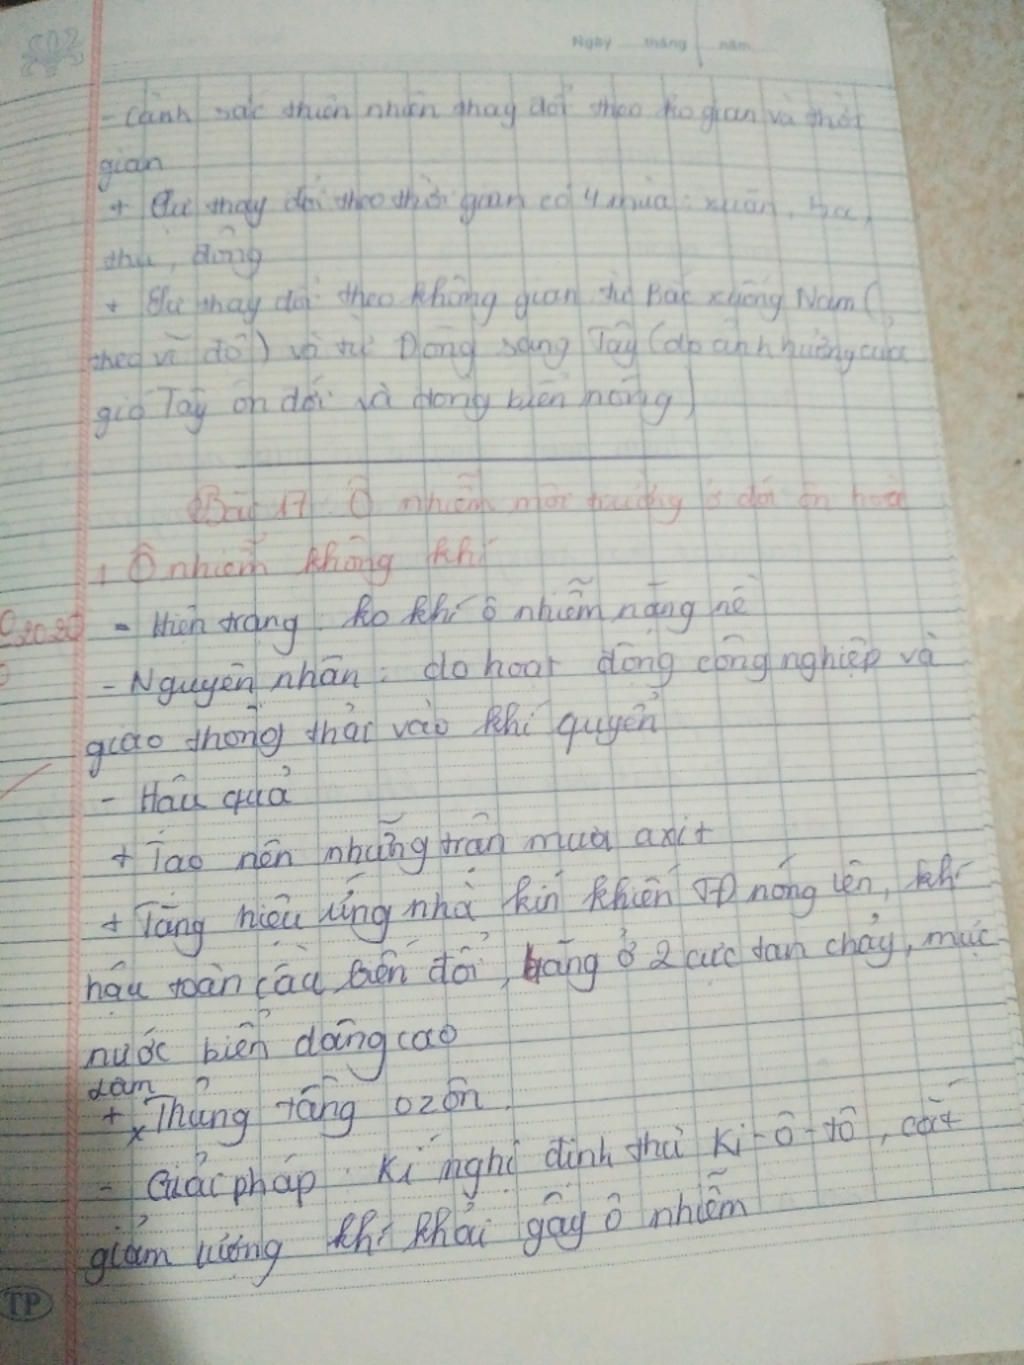 Ngày tháng năm
- Cảnh sắc thiên nhiên thay đổi theo ko gian và thời
gian
+ Sự thay đổi theo thời gian có 4 mùa: xuân, hạ,
thu, đông
+ Sự thay đổi theo không gian từ Bắc xuống Nam (
theo vĩ độ) và từ Đông sang Tây (do ảnh hưởng của
gió Tây ôn đới và dòng biển nóng)
Bài 17 Ô nhiễm môi trường ở đới ôn hoà
1 Ô nhiễm không khí
- Hiện trạng: ko khí ô nhiễm nặng nề
- Nguyên nhân: do hoạt động công nghiệp và
giao thông thải vào khí quyển
- Hậu quả
+ Tạo nên những trận mưa axit
+ Tăng hiệu ứng nhà kín khiến TĐ nóng lên, khí
hậu toàn cầu biến đổi, băng ở 2 cực tan chảy, mực
nước biển dâng cao
làm
+ Thủng tầng ozôn
- Giải pháp: Kí nghị định thư Ki-ô-tô, cắt
giảm lượng khí thải gây ô nhiễm
TP